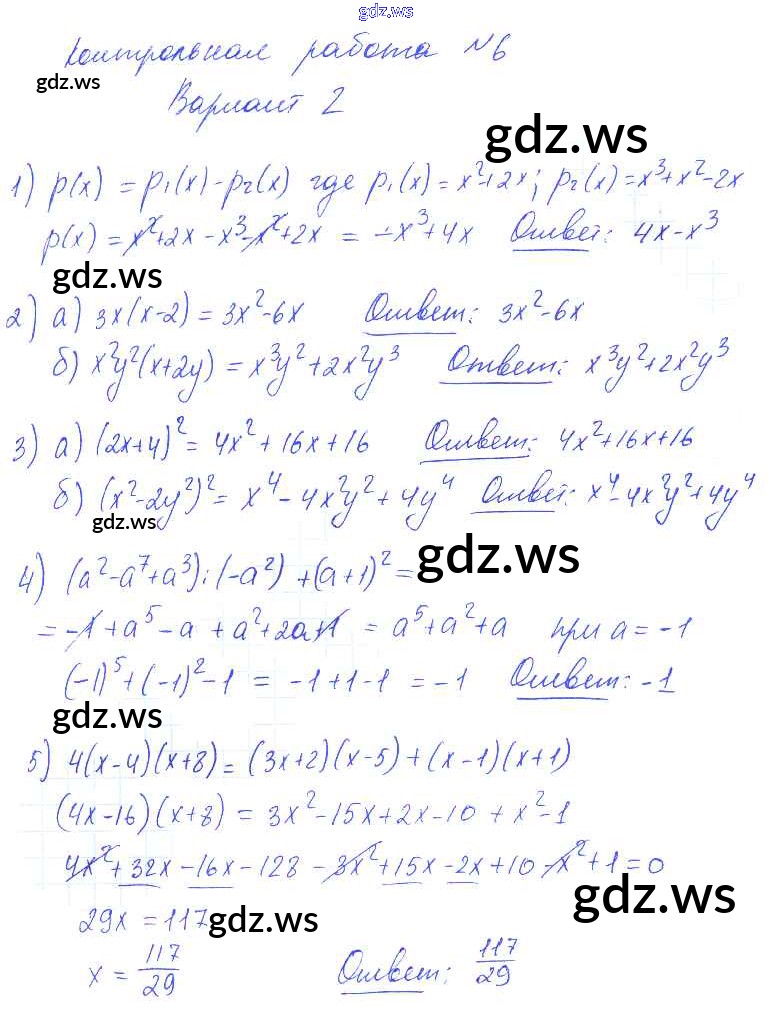 gdz.ws
Контрольная работа №6
gdz.ws
Вариант 2
gdz.ws
1) p(x) = p₁(x) - p₂(x) где p₁(x) = x²+2x; p₂(x) = x³+x²-2x
p(x) = x²+2x - x³-x²+2x = -x³+4x Ответ: 4x-x³
gdz.ws
2) а) 3x(x-2) = 3x²-6x Ответ: 3x²-6x
б) x²y²(x+2y) = x³y²+2x²y³ Ответ: x³y²+2x²y³
3) а) (2x+4)² = 4x²+16x+16 Ответ: 4x²+16x+16
б) (x²-2y²)² = x⁴-4x²y²+4y⁴ Ответ: x⁴-4x²y²+4y⁴
gdz.ws
gdz.ws
4) (a²-a⁷+a³):(-a²)+(a+1)² =
= -1+a⁵-a+a²+2a+1 = a⁵+a²+a при a = -1
(-1)⁵+(-1)²-1 = -1+1-1 = -1 Ответ: -1
gdz.ws
5) 4(x-4)(x+8) = (3x+2)(x-5)+(x-1)(x+1)
(4x-16)(x+8) = 3x²-15x+2x-10+x²-1
4x²+32x-16x-128-3x²+15x-2x+10-x²+1=0
gdz.ws
29x = 117
gdz.ws
x = 117/29 Ответ: 117/29